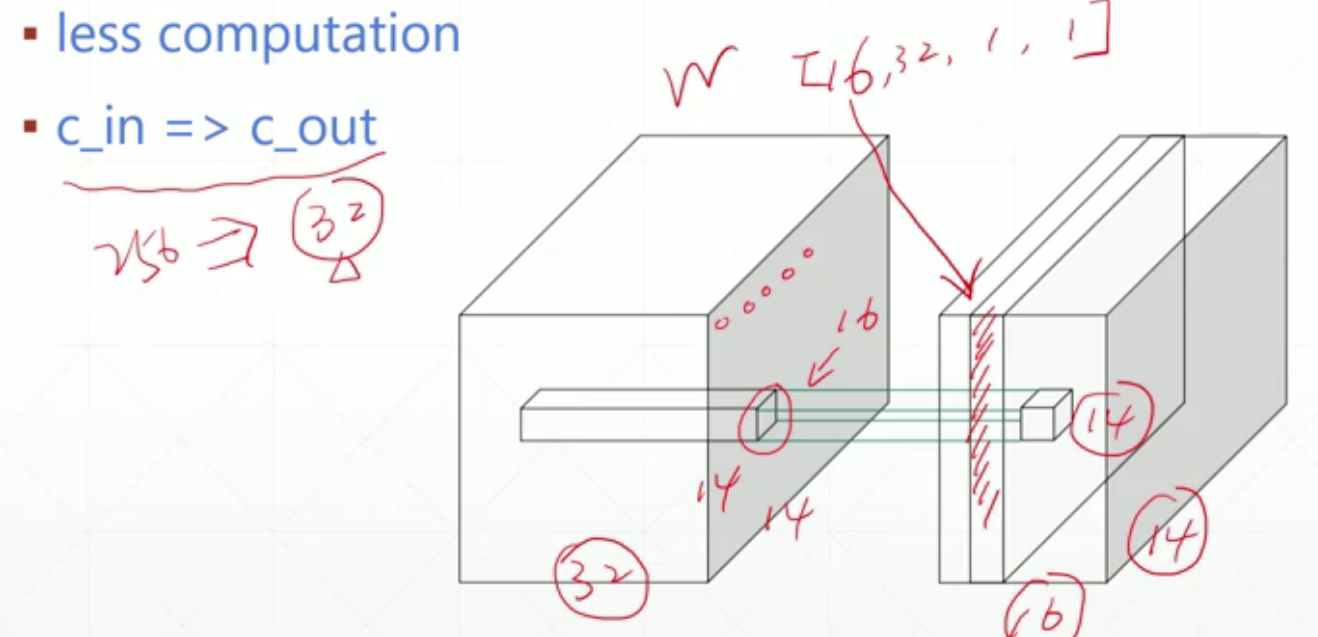 ▪ less computation
▪ c_in => c_out
W [16,32, 1, 1]
256 ⇒ 32
16
14
14
14
14
32
16